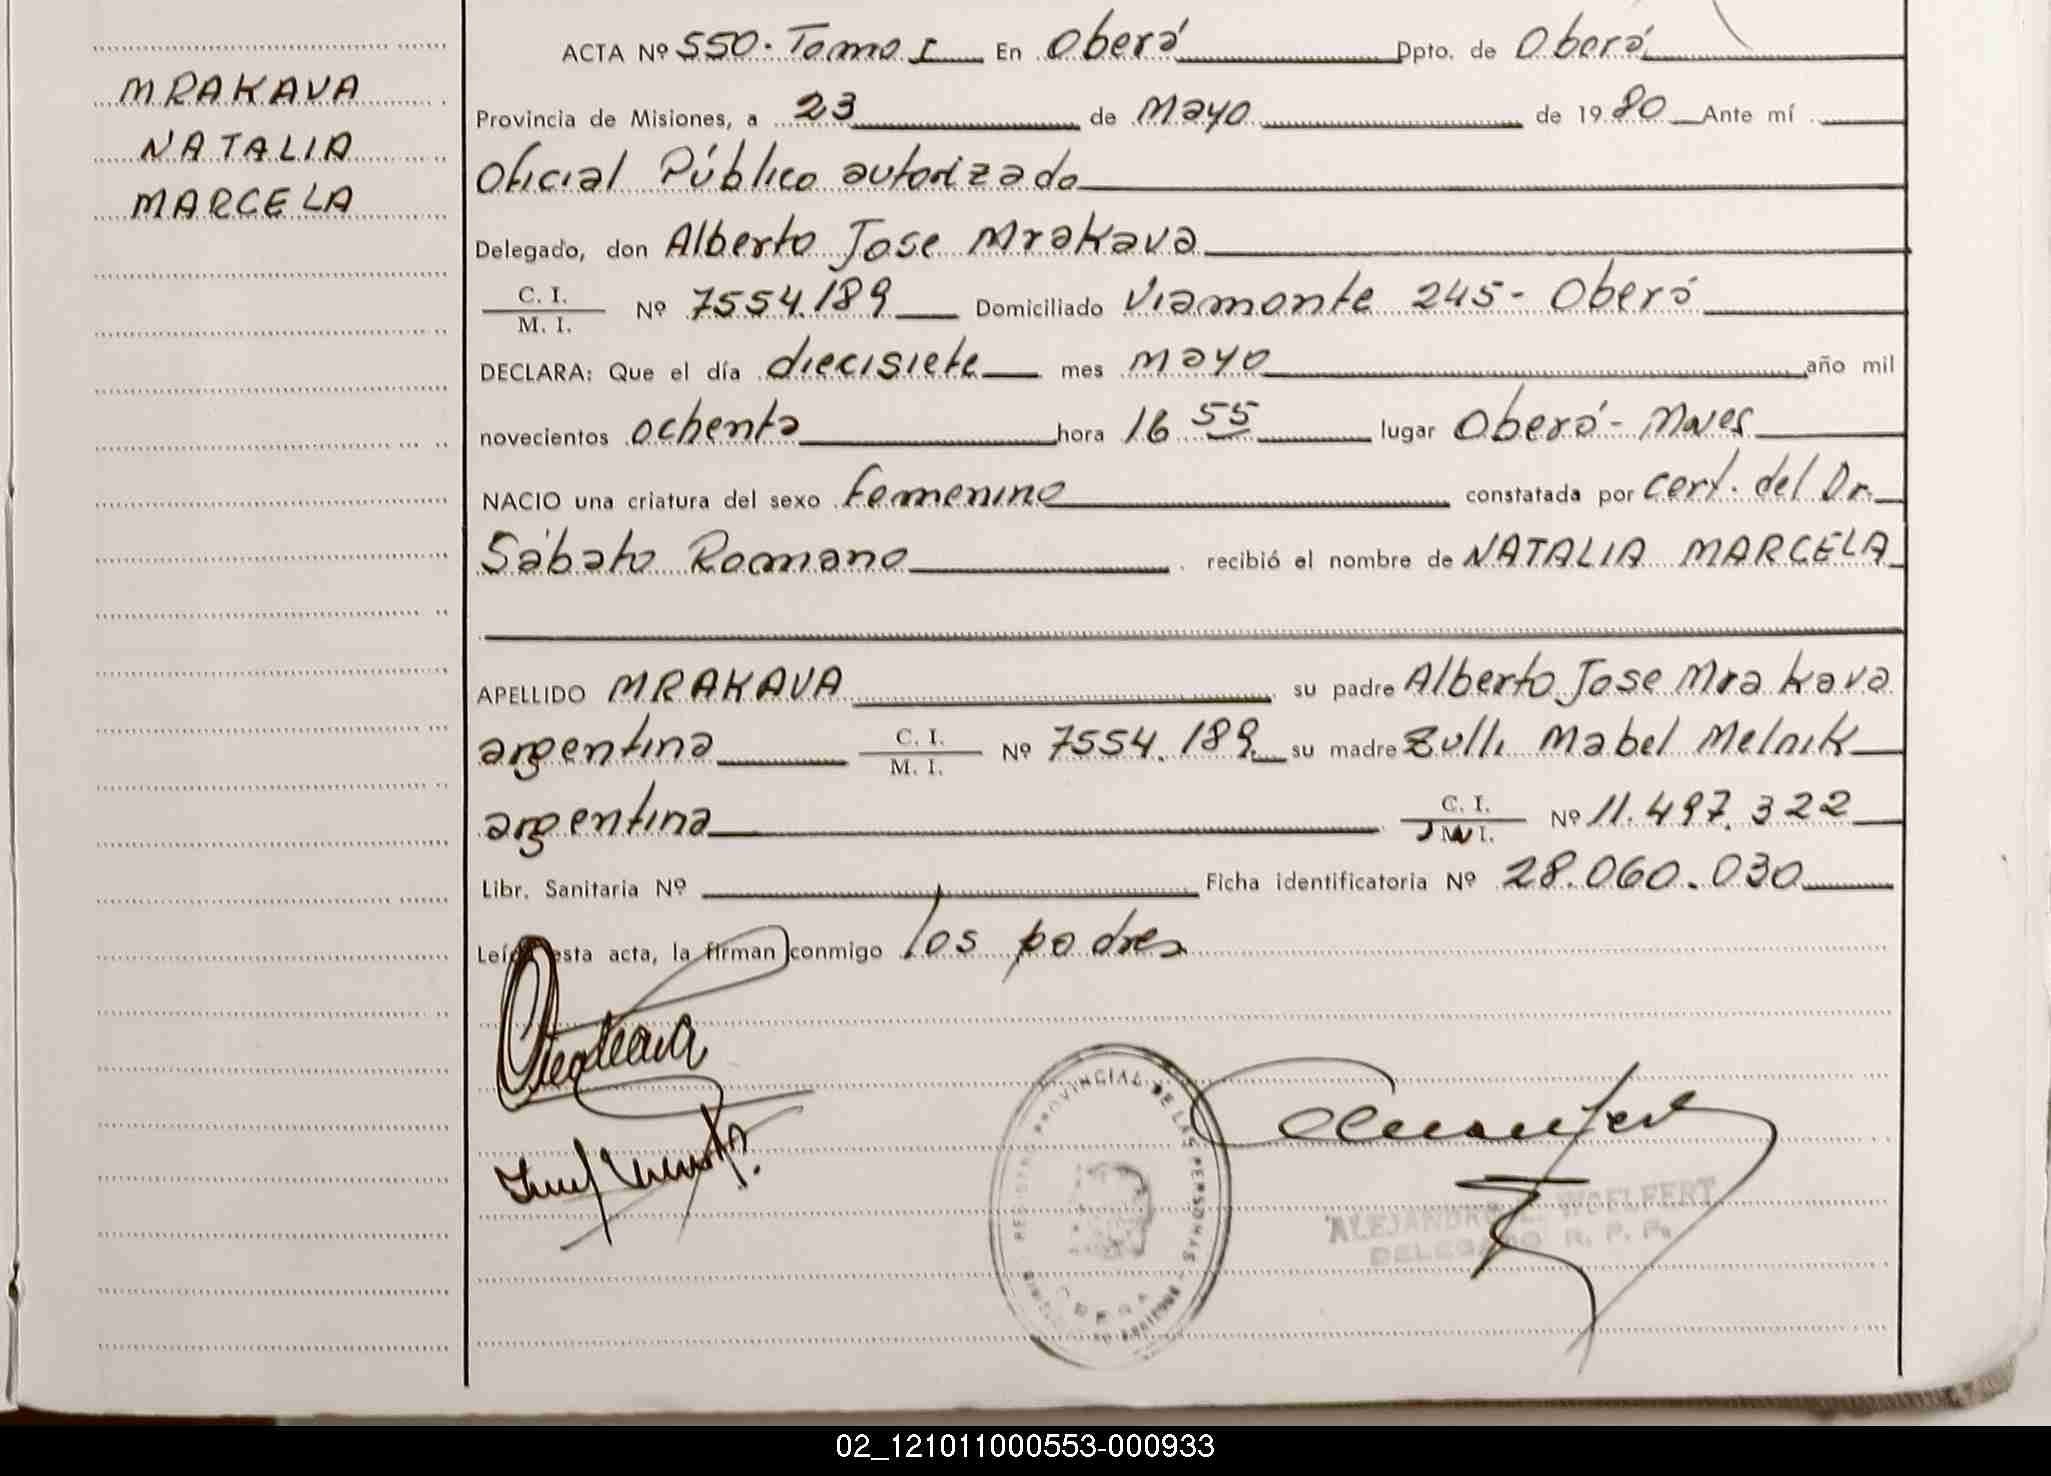 MRAKAVA
NATALIA
MARCELA
ACTA Nº 550. Tomo I En Oberá Dpto. de Oberá
Provincia de Misiones, a 23 de Mayo de 1980 Ante mí
Oficial Público autorizado
Delegado, don Alberto Jose Mrakava
C. I.
M. I.
Nº 7554.189 Domiciliado Viamonte 245- Oberá
DECLARA: Que el día diecisiete mes mayo año mil
novecientos ochenta hora 16 55 lugar Oberá- Mnes
NACIO una criatura del sexo femenino constatada por cert. del Dr.
Sábato Romano recibió el nombre de NATALIA MARCELA
APELLIDO MRAKAVA su padre Alberto Jose Mrakava
argentina C. I. M. I. Nº 7554.189 su madre Zulli Mabel Melnik
argentina C. I. M. I. Nº 11.497.322
Libr. Sanitaria Nº Ficha identificatoria Nº 28.060.030
Leída esta acta, la firman conmigo los padres
PROVINCIAL DE LAS PERSONAS
OBERA
ALEJANDRO WOELFERT
DELEGADO R. P. P.
02_121011000553-000933